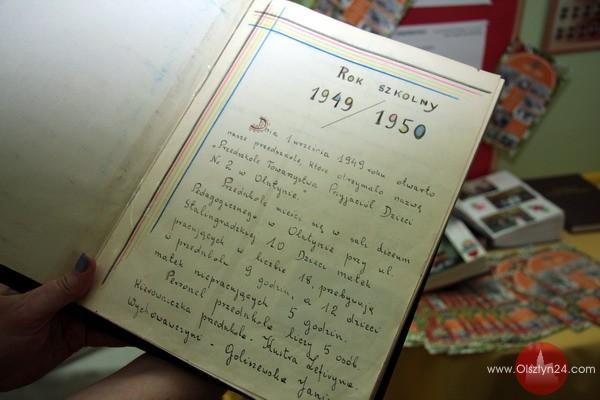 ROK SZKOLNY
1949/1950
Dnia 1 września 1949 roku otwarto
nasze przedszkole, które otrzymało nazwę
"Przedszkole Towarzystwa Przyjaciół Dzieci
Nr 2 w Olsztynie.
Przedszkole mieści się w sali liceum
Pedagogicznego w Olsztynie przy ul.
Stalingradzkiej 10 Dzieci matek
pracujących w liczbie 18, przebywają
w przedszkolu 9 godzin, a 12 dzieci
matek niepracujących 5 godzin.
Personel przedszkola liczy 5 osób.
Kierowniczka przedszkola - Kustra Zefiryna
Wychowawczyni - Goliszewska Jani
www.Olsztyn24.com